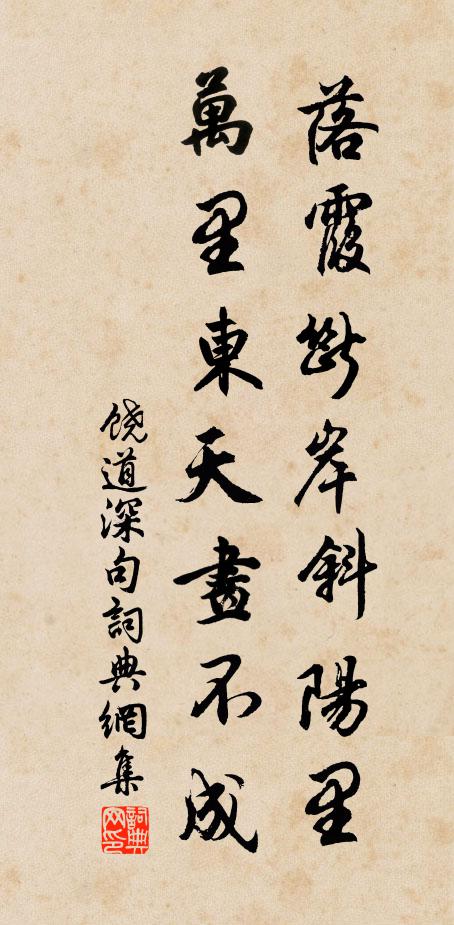 落霞斷岸斜陽里
萬里東天畫不成
饶道深句詞典網集
詞典网印